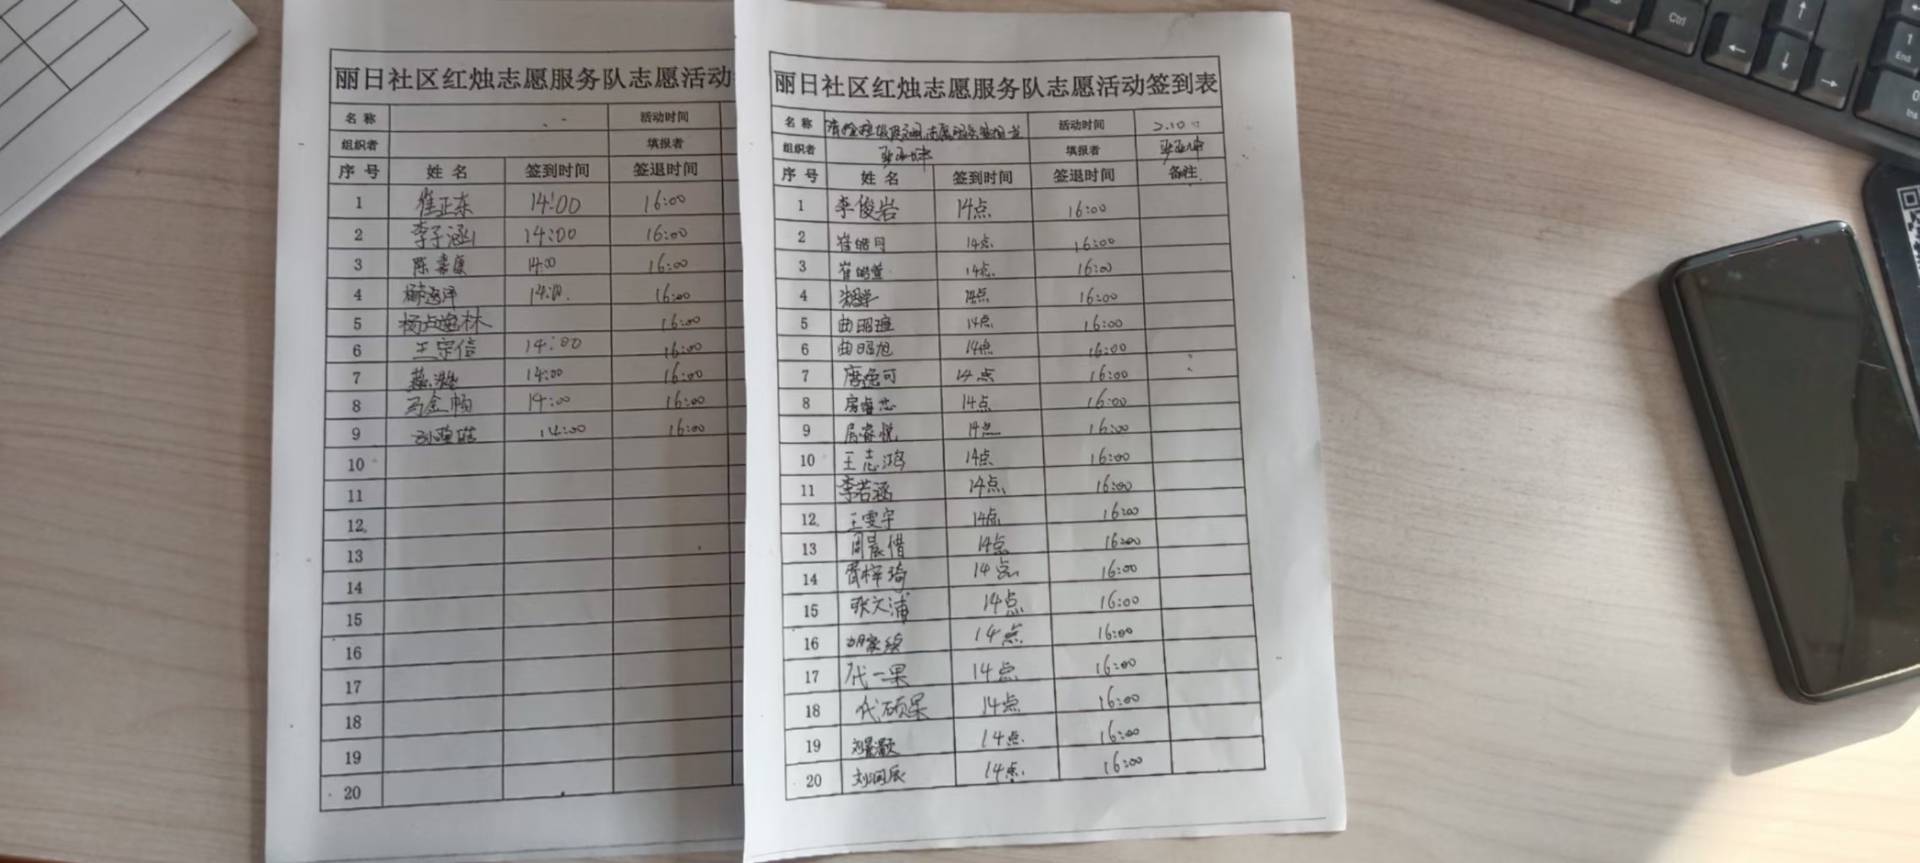 丽日社区红烛志愿服务队志愿活动
名称 活动时间
组织者 填报者
序号 姓名 签到时间 签退时间
1 崔正东 14:00 16:00
2 李子涵 14:00 16:00
3 陈 康 14:00 16:00
4 14:00 16:00
5 杨 林 16:00
6 王守信 14:00 16:00
7 14:00 16:00
8 马金畅 14:00 16:00
9 14:00 16:00
10
11
12
13
14
15
16
17
18
19
20
丽日社区红烛志愿服务队志愿活动签到表
名称 活动时间 2.10
组织者 填报者
序号 姓名 签到时间 签退时间 备注
1 李俊岩 14点 16:00
2 崔皓月 14点 16:00
3 崔 14点 16:00
4 14点 16:00
5 曲昭瑄 14点 16:00
6 曲昭旭 14点 16:00
7 唐逸可 14点 16:00
8 房睿芯 14点 16:00
9 房睿悦 14点 16:00
10 王志鸿 14点 16:00
11 李若涵 14点 16:00
12 王雯宇 14点 16:00
13 周晨借 14点 16:00
14 贾梓琦 14点 16:00
15 张文浦 14点 16:00
16 14点 16:00
17 代一果 14点 16:00
18 代硕果 14点 16:00
19 14点 16:00
20 刘润辰 14点 16:00
Ctrl
← ↑ ↓ →
1
End
0
Ins